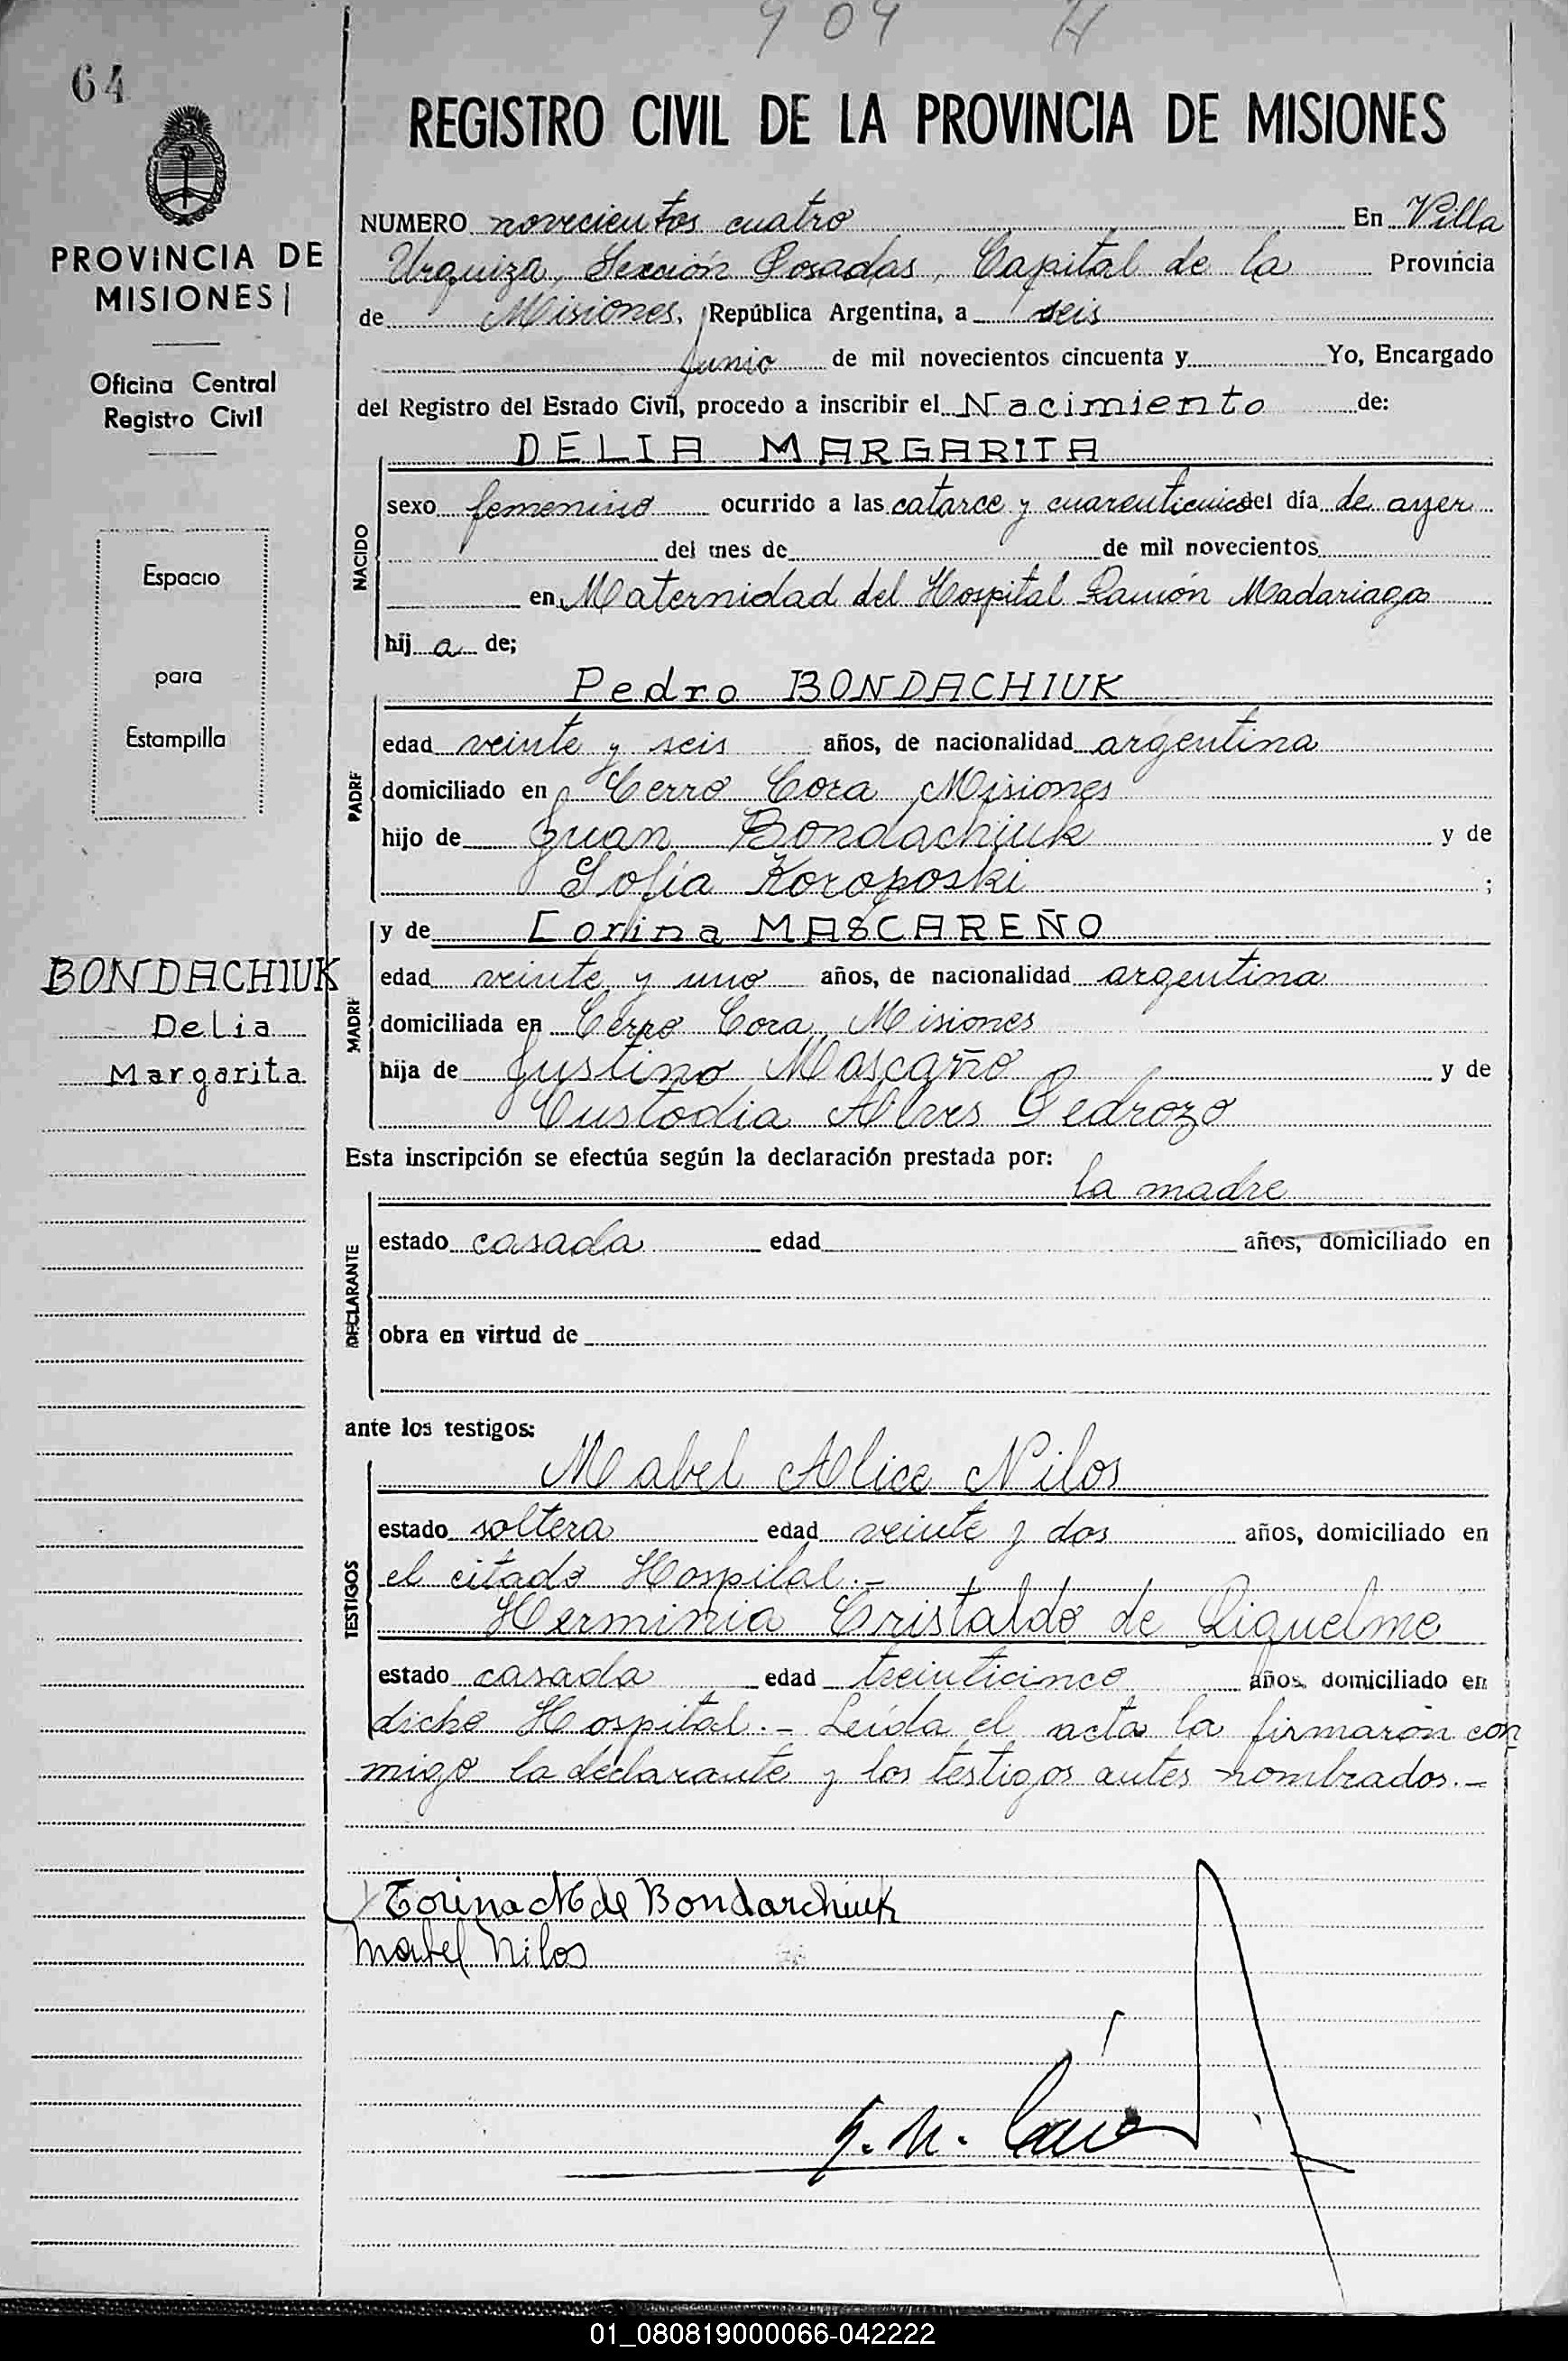 904 H
64
REGISTRO CIVIL DE LA PROVINCIA DE MISIONES
PROVINCIA DE
MISIONES
Oficina Central
Registro Civil
Espacio
para
Estampilla
BONDACHIUK
Delia
Margarita
NUMERO novecientos cuatro En Villa
Urquiza, Sección Posadas, Capital de la Provincia
de Misiones, República Argentina, a seis
Junio de mil novecientos cincuenta y Yo, Encargado
del Registro del Estado Civil, procedo a inscribir el Nacimiento de:
DELIA MARGARITA
NACIDO
sexo femenino ocurrido a las catorce y cuarenticinco del día de ayer
del mes de de mil novecientos
en Maternidad del Hospital Ramón Madariaga
hij a de;
Pedro BONDACHIUK
PADRE
edad veinte y seis años, de nacionalidad argentina
domiciliado en Cerro Cora Misiones
hijo de Juan Bondachiuk y de
Sofía Koroposki ;
y de Corina MASCAREÑO
MADRE
edad veinte y uno años, de nacionalidad argentina
domiciliada en Cerro Cora Misiones
hija de Justino Mascaño y de
Custodia Alves Pedrozo
Esta inscripción se efectúa según la declaración prestada por:
la madre
DECLARANTE
estado casada edad años, domiciliado en
obra en virtud de
ante los testigos:
Mabel Alice Nilos
TESTIGOS
estado soltera edad veinte y dos años, domiciliado en
el citado Hospital.-
Herminia Cristaldo de Riquelme
estado casada edad treinticinco años, domiciliado en
dicho Hospital.- Leída el acta la firmaron con
migo la declarante y los testigos antes nombrados.-
Corina M de Bondarchiuk
Mabel Nilos
01_080819000066-042222